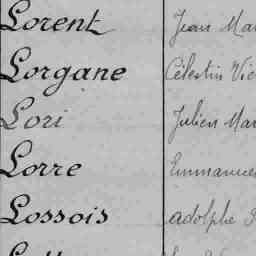 Lorent Jean Mar
Lorgane Célestin Vic
Lori Julien Mar
Lorre Emmanuel
Lossois Adolphe